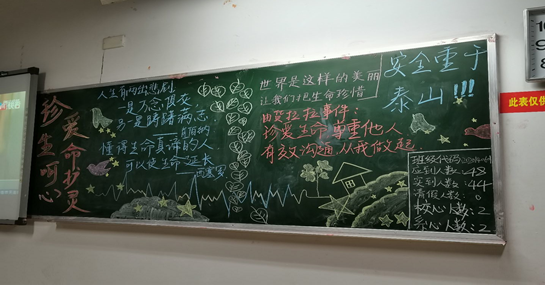 珍爱
生命
呵护
心灵
人生有两出悲剧
一是万念俱灰
另一是踌躇满志
懂得生命真谛的人
可以使生命延长
世界是这样的美丽
让我们把生命珍惜
事件:
珍爱生命 尊重他人
有效沟通 从我做起
安全重于
泰山!!!
班级代码
应到人数:48
实到人数:44
请假人数:
人数:2
人数:2
此表仅供